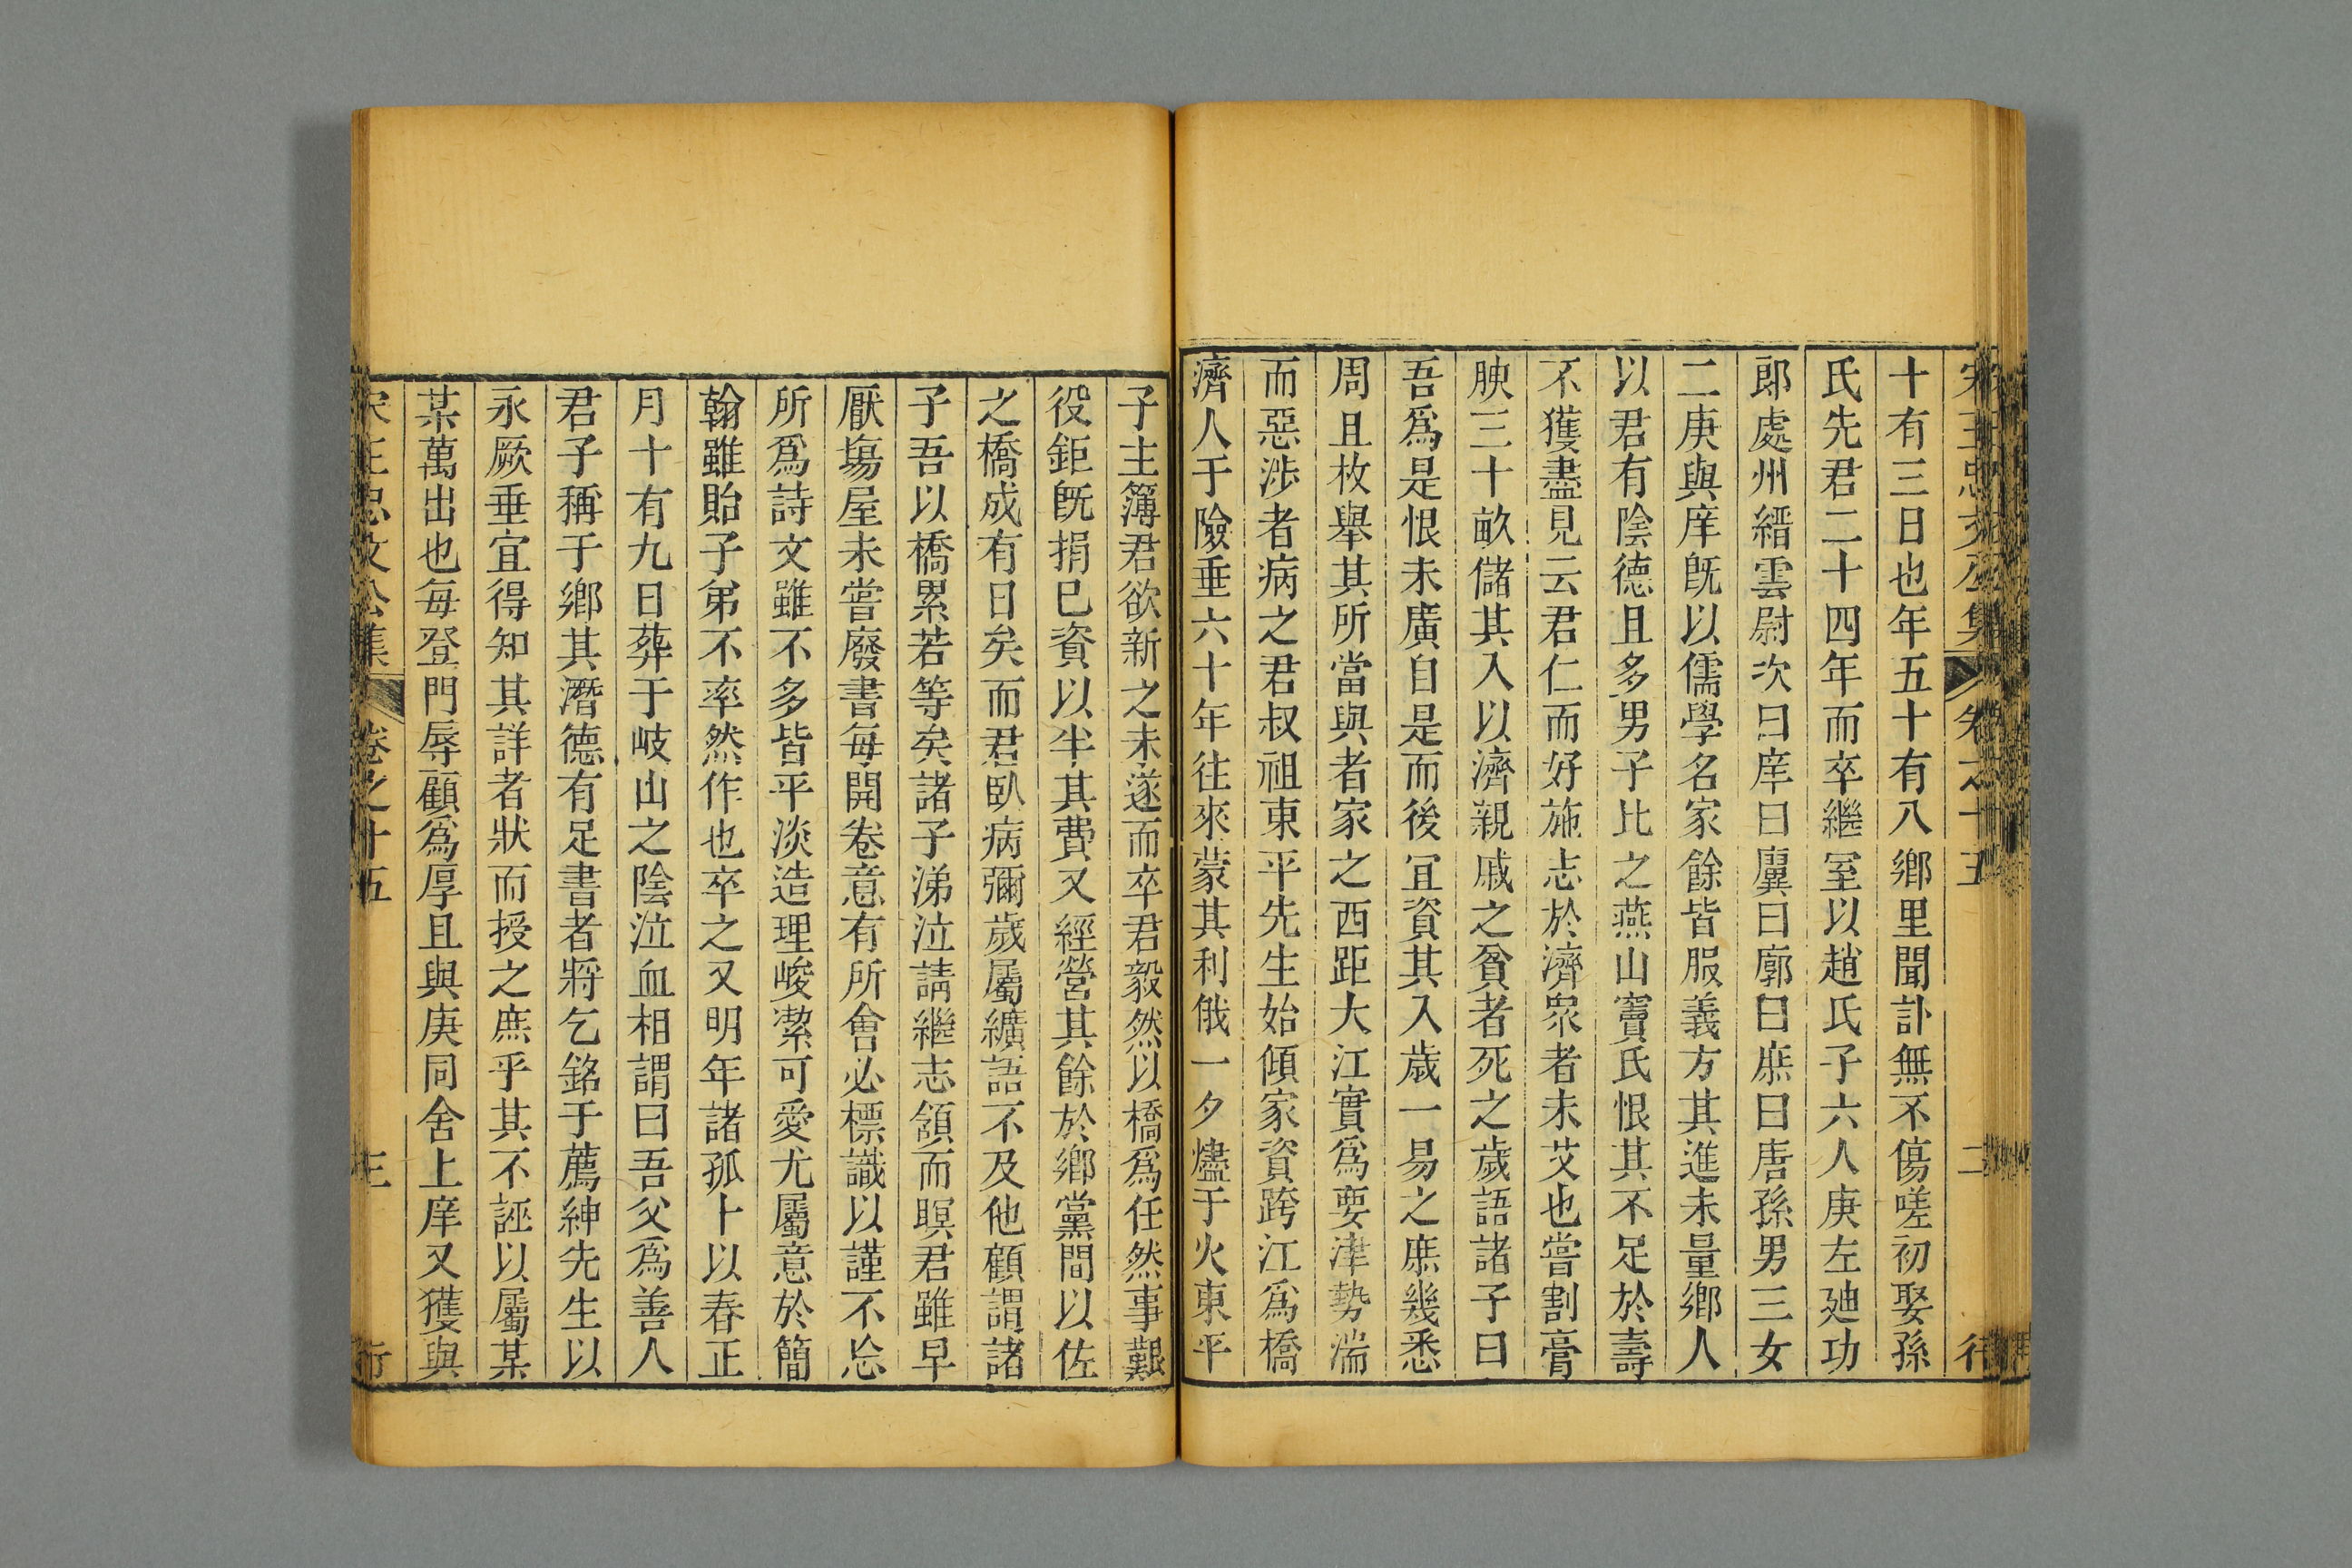 十有三日也年五十有八鄉里聞訃無不傷嗟初娶孫
氏先君二十四年而卒繼室以趙氏子六人庚左廸功
郎處州縉雲尉次曰庠曰廙曰廓曰庶曰唐孫男三女
二庚與庠旣以儒學名家餘皆服義方其進未量鄉人
以君有陰德且多男子比之燕山竇氏恨其不足於壽
不獲盡見云君仁而好施志於濟眾者未艾也嘗割膏
腴三十畝儲其入以濟親戚之貧者死之歲語諸子曰
吾爲是恨未廣自是而後宜資其入歲一易之庶幾悉
周且枚舉其所當與者家之西距大江實爲要津勢湍
而惡涉者病之君叔祖東平先生始傾家資跨江爲橋
濟人于險垂六十年往來蒙其利俄一夕燼于火東平
子主簿君欲新之未遂而卒君毅然以橋爲任然事艱
役鉅旣捐巳資以半其費又經營其餘於鄉黨間以佐
之橋成有日矣而君臥病彌歲屬纊語不及他顧謂諸
子吾以橋累若等矣諸子涕泣請繼志頷而瞑君雖早
厭塲屋未嘗廢書每開卷意有所會必標識以謹不忘
所爲詩文雖不多皆平淡造理峻潔可愛尤屬意於簡
翰雖貽子弟不率然作也卒之又明年諸孤卜以春正
月十有九日葬于岐山之陰泣血相謂曰吾父爲善人
君子稱于鄉其潛德有足書者將乞銘于薦紳先生以
永厥垂宜得知其詳者狀而授之庶乎其不誣以屬某
某萬出也每登門辱顧爲厚且與庚同舍上庠又獲與
宋王忠文公集 卷之十五 三 行